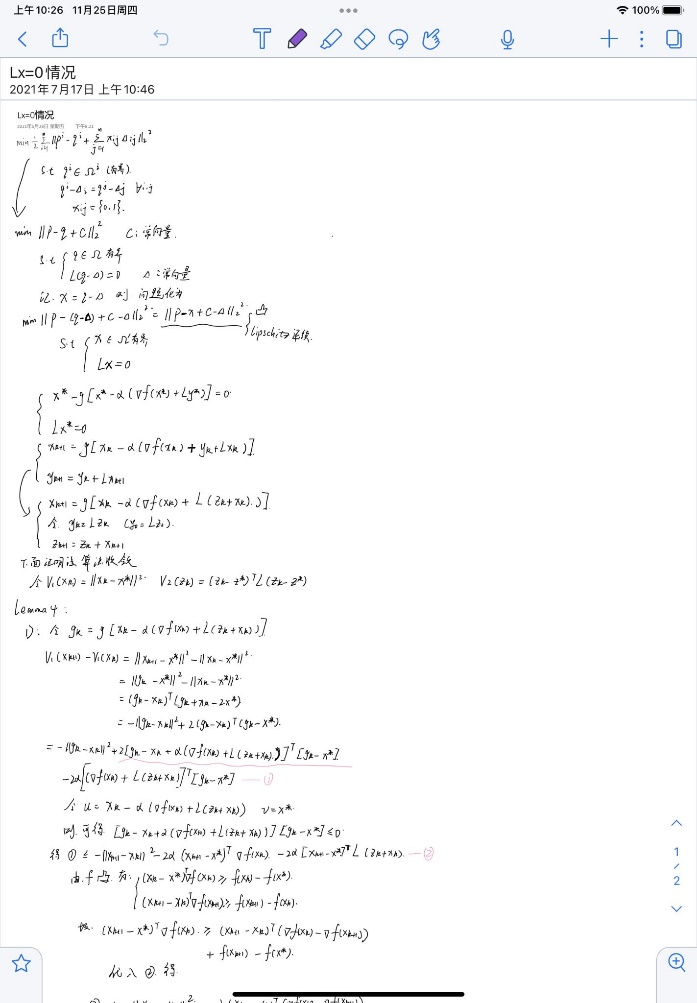 上午10:26 11月25日周四
100%
Lx=0情况
2021年7月17日 上午10:46
Lx=0情况
min ½ Σ ||pⁱ - qⁱ + Σ xij Δij||₂²
s.t qⁱ ∈ Ωⁱ (有界).
qⁱ-Δi = qʲ-Δj ∀i.j
xij = {0.1}.
min ||P-q+C||₂² C: 常向量.
s.t { q∈Ω 有界
L(q-Δ)=0 Δ: 常向量
记. x = q-Δ 则 问题化为
min ||P-(q-Δ)+C-Δ||₂² = ||P-x+C-Δ||₂² { 凸
Lipschitz连续.
s.t { x∈Ω'有界
Lx=0
{ x* - g[x* - α(∇f(x*)+Ly*)] = 0
Lx*=0
{ xk+1 = g[xk - α(∇f(xk) + yk+Lxk)].
yk+1 = yk + Lxk+1
{ xk+1 = g[xk - α(∇f(xk) + L(zk+xk).)]
令. yk=Lzk (y₀=Lz₀).
zk+1 = zk + xk+1
下面证明该算法收敛
令 V₁(xk) = ||xk-x*||². V₂(zk) = (zk-z*)ᵀL(zk-z*)
Lemma 4:
1): 令 gk = g[xk - α(∇f(xk)+L(zk+xk))]
V₁(xk+1)-V₁(xk) = ||xk+1-x*||²-||xk-x*||².
= ||gk-x*||²-||xk-x*||².
= (gk-xk)ᵀ(gk+xk-2x*)
= -||gk-xk||²+2(gk-xk)ᵀ(gk-x*).
= -||gk-xk||²+2[gk-xk+α(∇f(xk)+L(zk+xk))]ᵀ[gk-x*]
-2α[(∇f(xk)+L(zk+xk)]ᵀ[gk-x*] —①
令 u = xk-α(∇f(xk)+L(zk+xk)) v=x*.
则.可得. [gk-xk+α(∇f(xk)+L(zk+xk))][gk-x*]≤0.
得 ① ≤ -||xk+1-xk||²-2α(xk+1-x*)ᵀ∇f(xk).-2α[xk+1-x*]ᵀL(zk+xk). —②
由.f凸 有: { (xk-x*)ᵀ∇f(xk) ≥ f(xk)-f(x*).
(xk+1-xk)ᵀ∇f(xk+1) ≥ f(xk+1)-f(xk).
故. (xk+1-x*)ᵀ∇f(xk). ≥ (xk+1-xk)ᵀ(∇f(xk)-∇f(xk+1))
+ f(xk+1)-f(x*).
代入②.得.
1
/
2